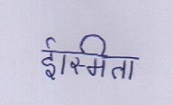 ईास्मिता